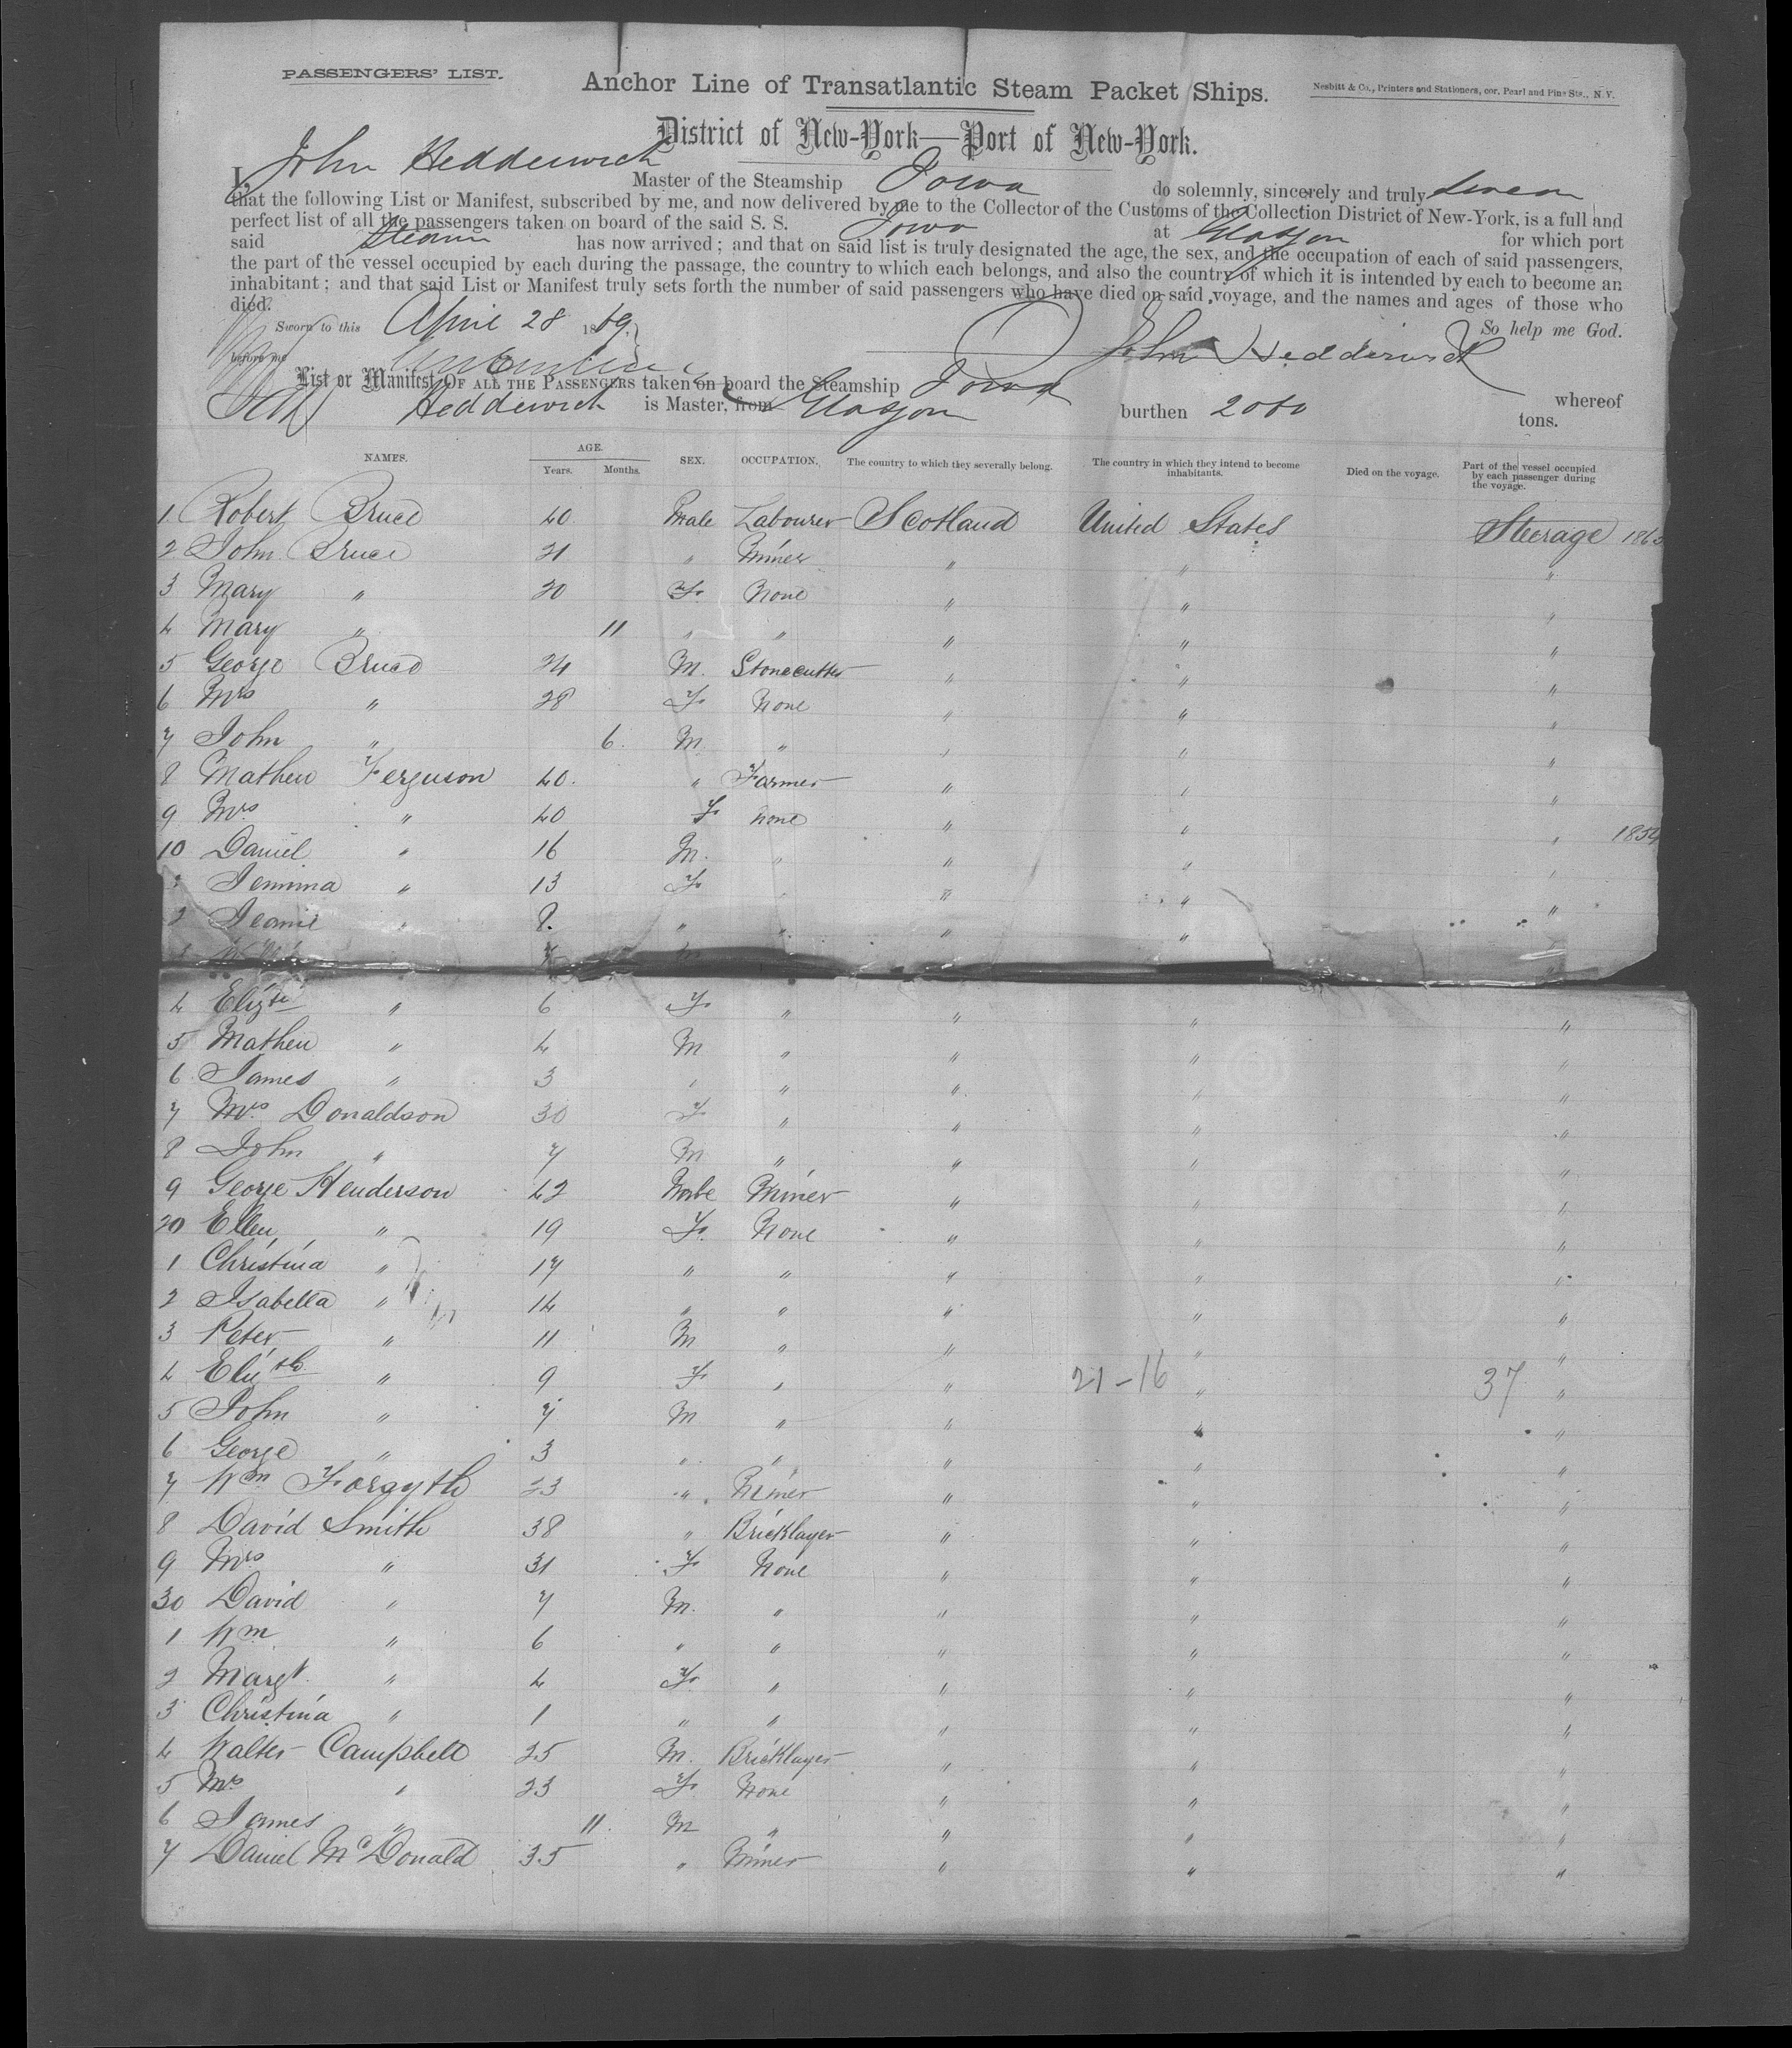 PASSENGERS' LIST.
Anchor Line of Transatlantic Steam Packet Ships.
Nesbitt & Co., Printers and Stationers, cor. Pearl and Pine Sts., N. Y.
District of New-York—Port of New-York.
I, John Hedderwick Master of the Steamship Iowa do solemnly, sincerely and truly swear
that the following List or Manifest, subscribed by me, and now delivered by me to the Collector of the Customs of the Collection District of New-York, is a full and
perfect list of all the passengers taken on board of the said S. S. Iowa at Glasgow for which port
said Steamer has now arrived; and that on said list is truly designated the age, the sex, and the occupation of each of said passengers,
the part of the vessel occupied by each during the passage, the country to which each belongs, and also the country of which it is intended by each to become an
inhabitant; and that said List or Manifest truly sets forth the number of said passengers who have died on said voyage, and the names and ages of those who
died. So help me God.
Sworn to this April 28 1869. John Hedderwick
before me
List or Manifest OF ALL THE PASSENGERS taken on board the Steamship Iowa whereof
Hedderwick is Master, from Glasgow burthen 2000 tons.
NAMES. AGE. Years. Months. SEX. OCCUPATION. The country to which they severally belong. The country in which they intend to become inhabitants. Died on the voyage. Part of the vessel occupied by each passenger during the voyage.
1 Robert Bruce 40 Male Labourer Scotland United States Steerage 1863
2 John Bruce 21 " Miner " " "
3 Mary " 20 F. None " " "
4 Mary " 11 " " " " "
5 George Bruce 24 M. Stonecutter " " "
6 Mrs " 28 F. None " " "
7 John " 6. M. " " " "
8 Mathew Ferguson 40. " Farmer " " "
9 Mrs " 40 F. none " " " 1854
10 Daniel " 16 M. " " " "
1 Jemima " 13 F. " " " "
2 Jeanie " 8. " " " " "
7
4 Elizth " 6 F. " " " "
5 Mathew " 4 M " " " "
6 James " 3 " " " " "
7 Mrs Donaldson 30 F. " " " "
8 John " 7 M " " " "
9 George Henderson 42 Male Miner " " "
20 Ellen " 19 F. None " " "
1 Christina " 17 " " " " "
2 Isabella " 14 " " " " "
3 Peter " 11 M " " " "
4 Elizth " 9 F. " " 21-16 " 37 "
5 John " 7 M " " " "
6 George " 3 " " " " "
7 Wm Forsyth 23 " Miner " " "
8 David Smith 38 " Bricklayer " " "
9 Mrs " 31 F. None " " "
30 David " 7 M. " " " "
1 Wm " 6 " " " " "
2 Margt " 4 F. " " " "
3 Christina " 1 " " " " "
4 Walter Campbell 25 M. Bricklayer " " "
5 Mrs " 23 F. None " " "
6 James " 11. M " " " "
7 Daniel McDonald 35 " Miner " " "